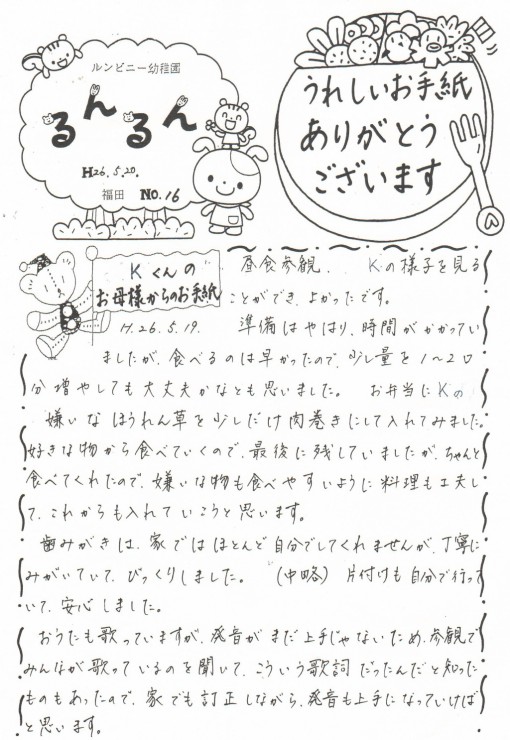 ルンビニー幼稚園
るんるん
H26.5.20.
福田 No.16
うれしいお手紙
ありがとう
ございます
Kくんの
お母様からのお手紙
H.26.5.19.
昼食参観、Kの様子を見る
ことができ、よかったです。
準備はやはり、時間がかかってい
ましたが、食べるのは早かったので、少し量を1~2口
分増やしても大丈夫かなとも思いました。 お弁当にKの
嫌いなほうれん草を少しだけ肉巻きにして入れてみました。
好きな物から食べていくので、最後に残していましたが、ちゃんと
食べてくれたので、嫌いな物も食べやすいように料理も工夫し
て、これからも入れていこうと思います。
歯みがきは、家ではほとんど自分でしてくれませんが、丁寧に
みがいていて、びっくりしました。 (中略) 片付けも自分で行って
いて、安心しました。
おうたも歌っていますが、発音がまだ上手じゃないため、参観で
みんなが歌っているのを聞いて、こういう歌詞だったんだと知った
ものもあったので、家でも訂正しながら、発音も上手になっていけば
と思います。